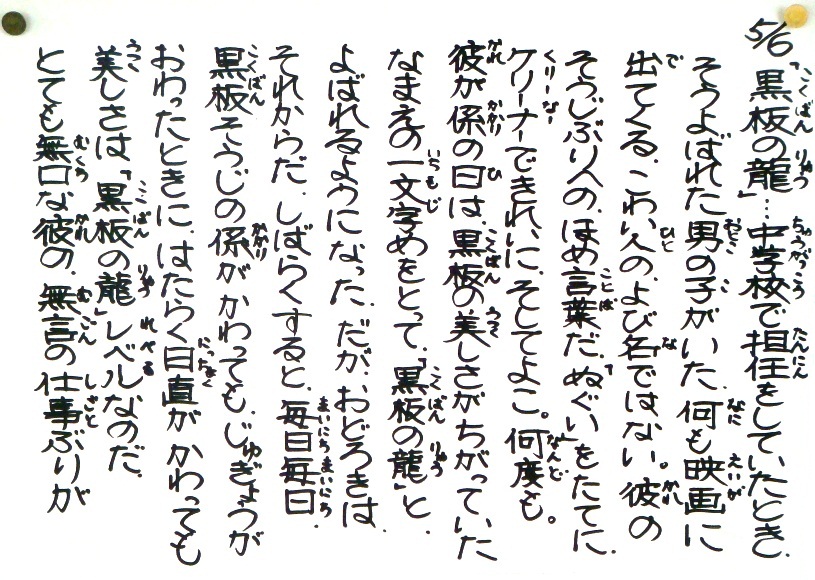 5/6「黒板の龍」…中学校で担任をしていたとき、
そうよばれた男の子がいた。何も映画に
出てくる、こわい人の、よび名ではない。彼の
そうじぶりへの、ほめ言葉だ。「ぬぐい」をたてに、
クリーナーできれいに、そしてよこ。何度も。
彼が係の日は、黒板の美しさがちがっていた
なまえの一文字めをとって、「黒板の龍」と、
よばれるようになった。だが、おどろきは、
それからだ。しばらくすると、毎日毎日、
黒板そうじの係がかわっても、じゅぎょうが
おわったときに、はたらく日直が かわっても
美しさは、「黒板の龍」レベルなのだ。
とても無口な彼の、無言の仕事ぶりが